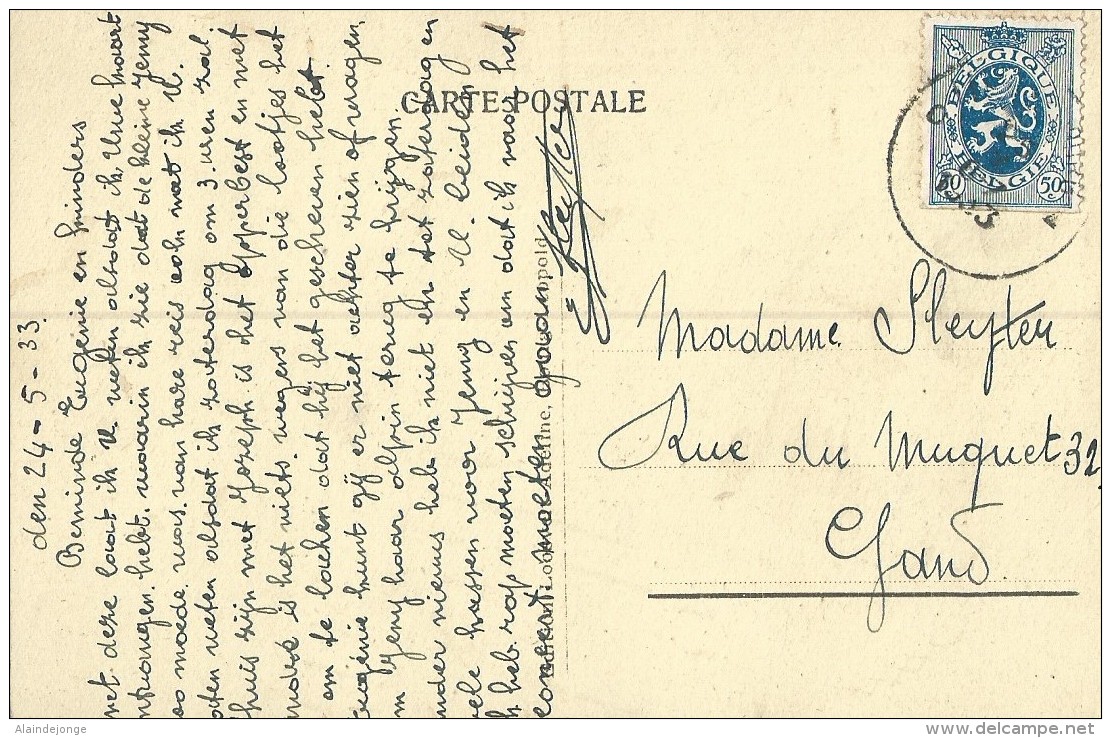 CARTE-POSTALE
BELGIQUE
BELGIE
50 50
den 24-5-33.
Beminde Eugenie en kinders
met deze laat ik u weten alsdat ik Uwe kaart
ontvangen hebt. waarin ik zie dat de kleine Jenny
zoo moede was. van hare reis ook wat ik U.
laten weten alsdat ik zaterdag om 3. uren zal.
thuis zijn met Joseph is het opperbest en met
is het niets. wegens van die laatjes het
om te lachen dat hij het geschreven hebt.
Eugénie kunt gij er niet achter zien of vragen
om Jenny haar alpin terug te krijgen
ander nieuws heb ik niet tot zaterdag en
vele kussen voor Jenny en U. beiden
ik heb rap moeten schrijven om dat ik naar het
concert moeten gaan
Sleyter
Madame Sleyter
Rue du Muguet 32
Gand
Alaindejonge
delcampe.net